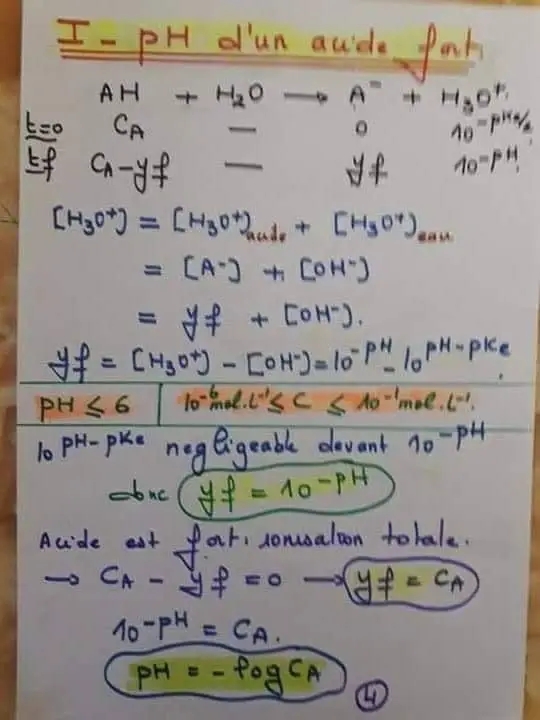 I - pH d'un acide fort.
AH + H₂O → A⁻ + H₃O⁺.
t=0 CA — 0 10^-pKe/2
tf CA-yf — yf 10^-pH
[H₃O⁺] = [H₃O⁺]acide + [H₃O⁺]eau
= [A⁻] + [OH⁻]
= yf + [OH⁻].
yf = [H₃O⁺] - [OH⁻] = 10^-pH - 10^pH-pKe
pH ≤ 6 | 10⁻⁶mol.L⁻¹ ≤ C ≤ 10⁻¹mol.L⁻¹.
10^pH-pKe negligeable devant 10^-pH
donc yf = 10^-pH
Acide est fort. ionisation totale.
→ CA - yf = 0 → yf = CA
10^-pH = CA.
pH = - log CA
4